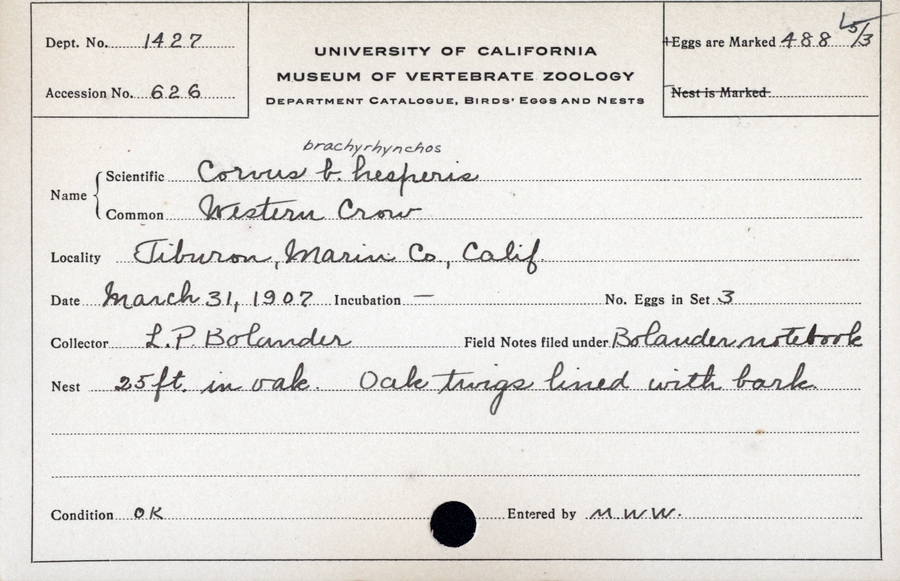 Dept. No. 1427
Accession No. 626
UNIVERSITY OF CALIFORNIA
MUSEUM OF VERTEBRATE ZOOLOGY
DEPARTMENT CATALOGUE, BIRDS' EGGS AND NESTS
Eggs are Marked 488 5/3
Nest is Marked
brachyrhynchos
Name Scientific Corvus b. hesperis
Common Western Crow
Locality Tiburon, Marin Co., Calif.
Date March 31, 1907 Incubation — No. Eggs in Set 3
Collector L.P. Bolander Field Notes filed under Bolander notebook
Nest 25 ft. in oak. Oak twigs lined with bark.
Condition OK Entered by M.W.W.